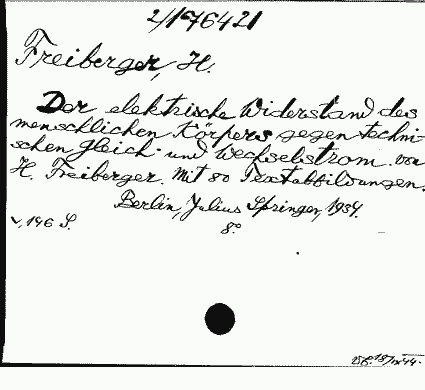 2/176421
Freiberger, H.
Der elektrische Widerstand des
menschlichen Körpers gegen techni-
schen Gleich- und Wechselstrom. von
H. Freiberger. Mit 80 Textabbildungen.
Berlin, Julius Springer, 1934.
V, 146 S. 8°